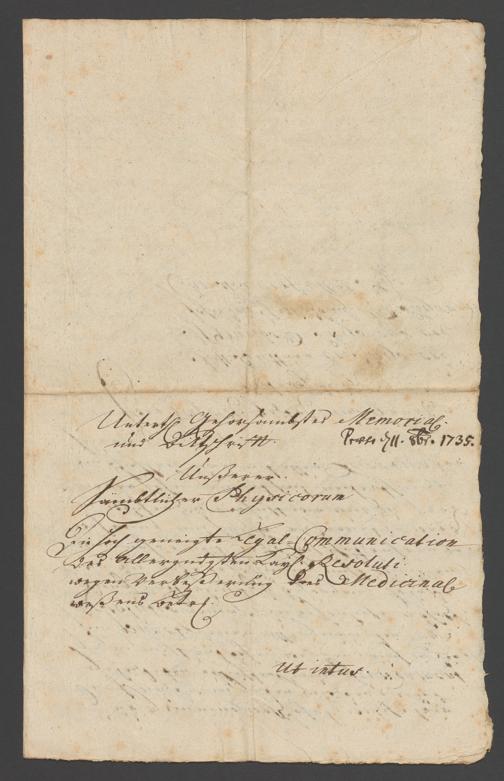 Unterth. Gehorsambstes Memorial
und Bittschrifft
Præs. d. 11. 8br. 1735.
Unßerer
Sämbtlicher Physicorum
hoch geneigte Legal-Communication
der allergnädgsten Kays. Resoluti
wegen Verbeßerung des Medicinal
weßens betr.
Ut intus.